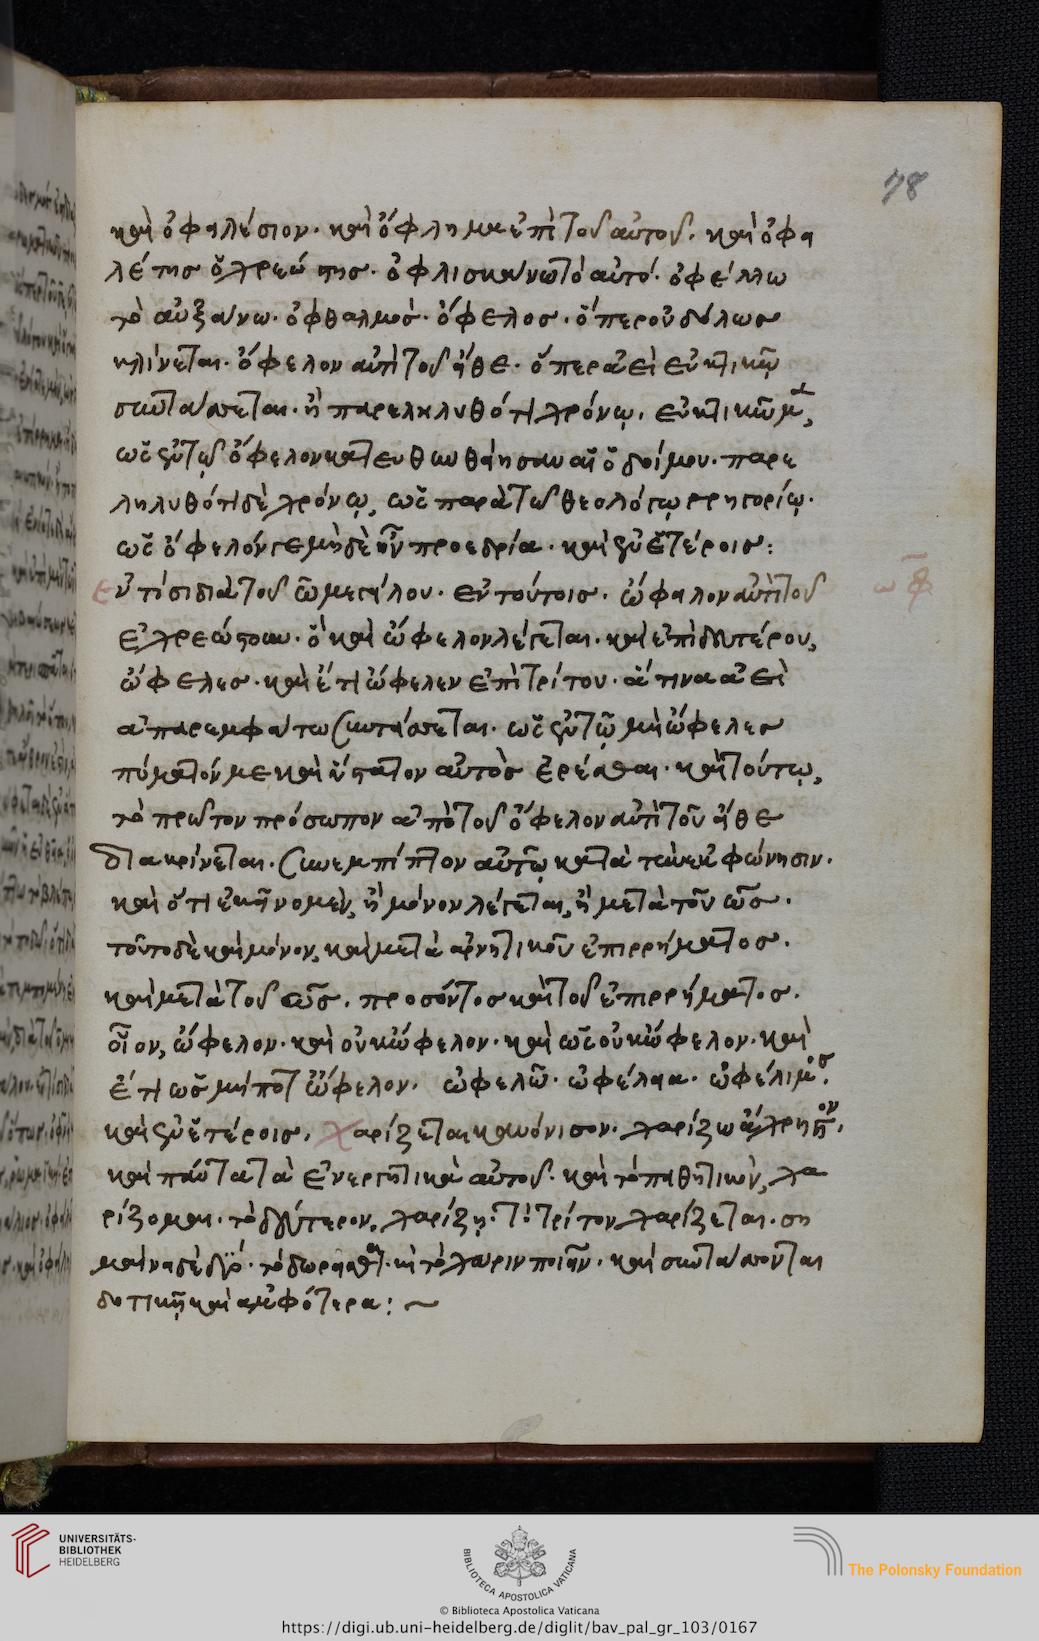 78
καὶ ὀφηλέσιον· καὶ ὄφλημα ἐπὶ τοῦ αὐτοῦ· καὶ ὀφει
λέτης ὁ χρεώστης· ὀφλισκαίνω τὸ αὐτό· ὀφέλλω
τὸ αὐξαίνω· ὀφθαλμός· ὄφελος· ὅπερ οὐδόλως
κλίνεται· ὄφελον ἀντὶ τοῦ εἴθε· ὅπερ ἀεὶ εὐκτικῷ
συντάσσεται· ἢ παρεληλυθότι χρόνῳ, εὐκτικῶ μὲν,
ὡς ἐν τῷ ὄφελον κατευθυνθείησαν αἱ ὁδοί μου· παρε
ληλυθότι δὲ χρόνῳ, ὡς παρὰ τῷ θεολόγῳ γρηγορίῳ·
ὡς ὄφελόν γε μηδὲ ἦν προεδρία· καὶ ἐν ἑτέροις:
Ἐν τίσι διὰ τοῦ ω μεγάλου· ἐν τούτοις· ὤφηλον ἀντὶ τοῦ
ωφ
ἐχρεώστουν· ὃ καὶ ὤφελον λέγεται· καὶ ἐπὶ δευτέρου,
ὤφελες· καὶ ἔτι ὤφελεν ἐπὶ τρίτου· ἅτινα ἀεὶ
ἀπαρεμφάτω συντάσσεται· ὡς ἐν τῶ μὴ ὤφελες
πύματόν με καὶ ὕστατον αὐτὸς ἐρέσθαι· καὶ τούτῳ,
τὸ πρῶτον πρόσωπον ἀπὸ τοῦ ὄφελον ἀντὶ τοῦ εἴθε
διακρίνεται· συνεμπίπτον αὐτῷ κατὰ τὴν ἐκφώνησιν·
καὶ ὅτι ἐκεῖνο μὲν, ἢ μόνον λέγεται, ἢ μετὰ τοῦ ὡς·
τοῦτο δὲ καὶ μόνον, καὶ μετὰ ἀρνητικοῦ ἐπιρρήματος·
καὶ μετὰ τοῦ ὡς, προσόντος καὶ τοῦ ἐπιρρήματος·
οἷον, ὤφελον· καὶ οὐκ ὤφελον· καὶ ὡς οὐκ ὤφελον· καὶ
ἔτι ὡς μήποτ ὤφελον· ὠφελῶ· ὠφέλεια· ὠφέλιμος·
καὶ ἐν ἑτέροις· Χαρίζεται κανόνισον· χαρίζω ἄχρηστον,
καὶ πάντα τὰ ἐνεργητικὰ αὐτοῦ· καὶ τὸ παθητικὸν, χα
ρίζομαι· τὸ δεύτερον, χαρίζῃ· τὸ τρίτον χαρίζεται· ση
μαίνει δὲ δύο· τὸ δωρεῖσθαι· καὶ τὸ χάριν ποιεῖν· καὶ συντάσσονται
δοτικῇ καὶ ἀμφότερα: ~
UNIVERSITÄTS-
BIBLIOTHEK
HEIDELBERG
BIBLIOTECA APOSTOLICA VATICANA
The Polonsky Foundation
© Biblioteca Apostolica Vaticana
https://digi.ub.uni-heidelberg.de/diglit/bav_pal_gr_103/0167